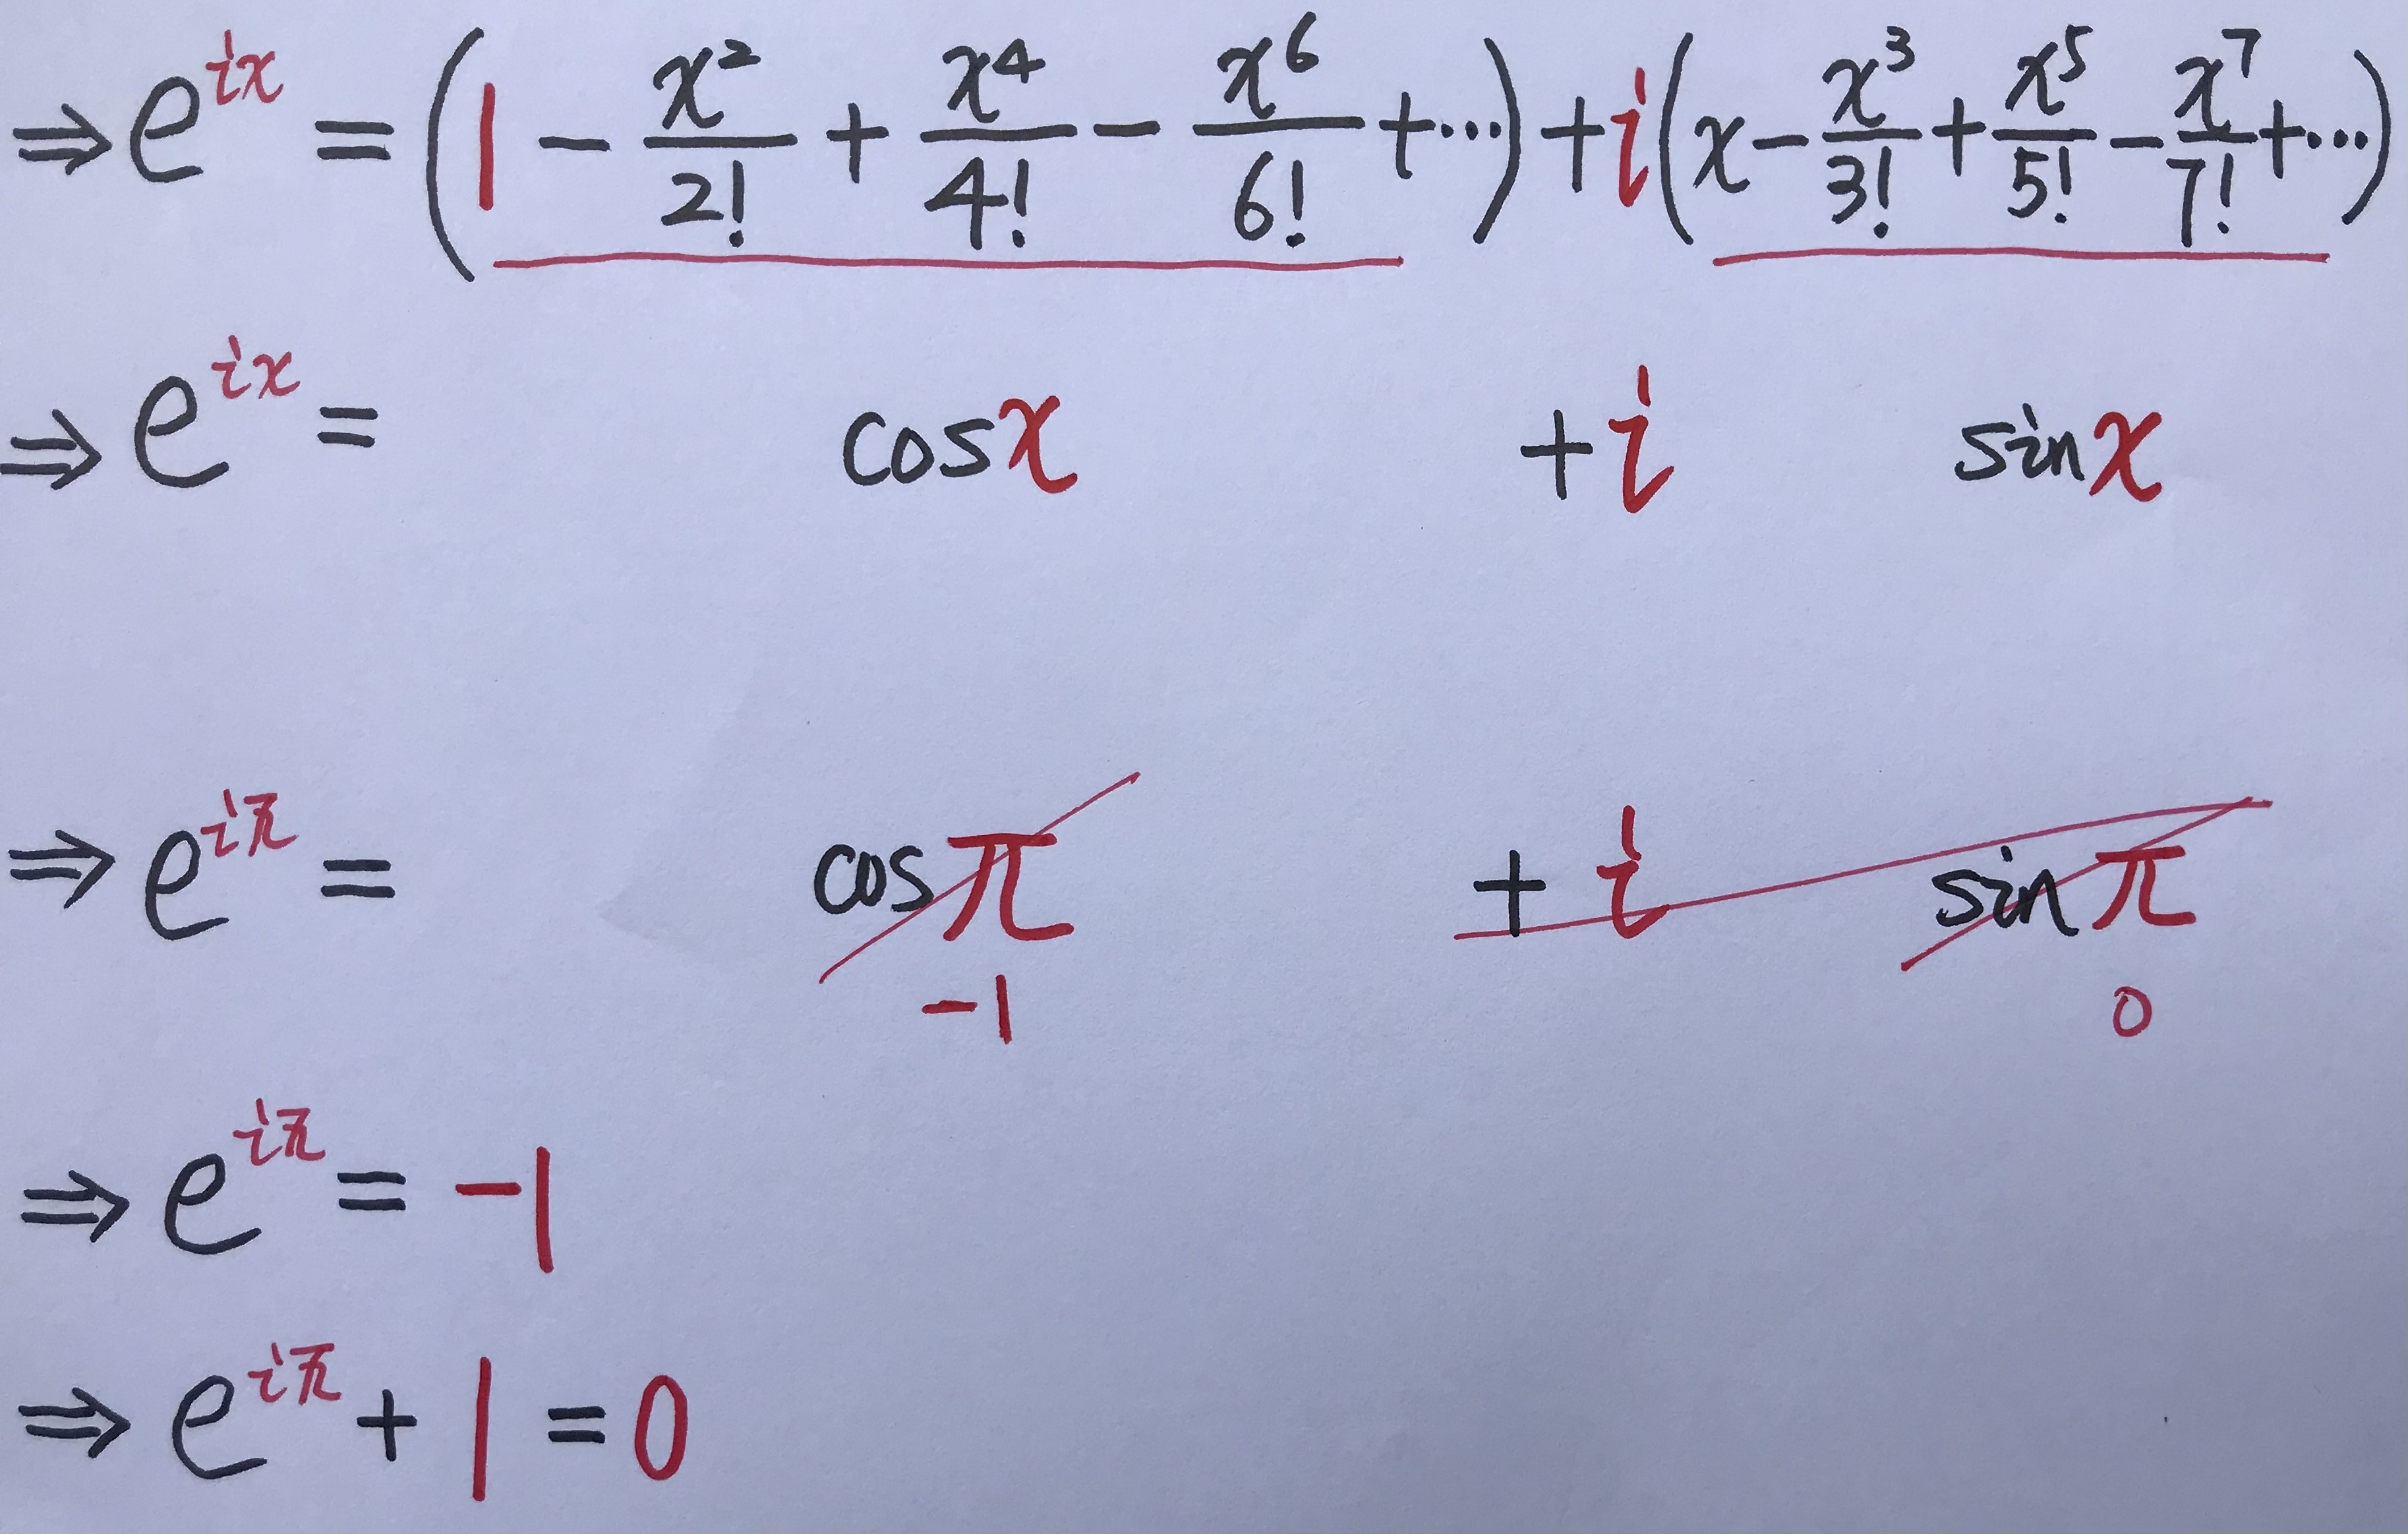 ⇒ e^{ix} = (1 - x^2/2! + x^4/4! - x^6/6! + ···) + i(x - x^3/3! + x^5/5! - x^7/7! + ···)
⇒ e^{ix} = cos x + i sin x
⇒ e^{iπ} = cos π + i sin π
-1 0
⇒ e^{iπ} = -1
⇒ e^{iπ} + 1 = 0